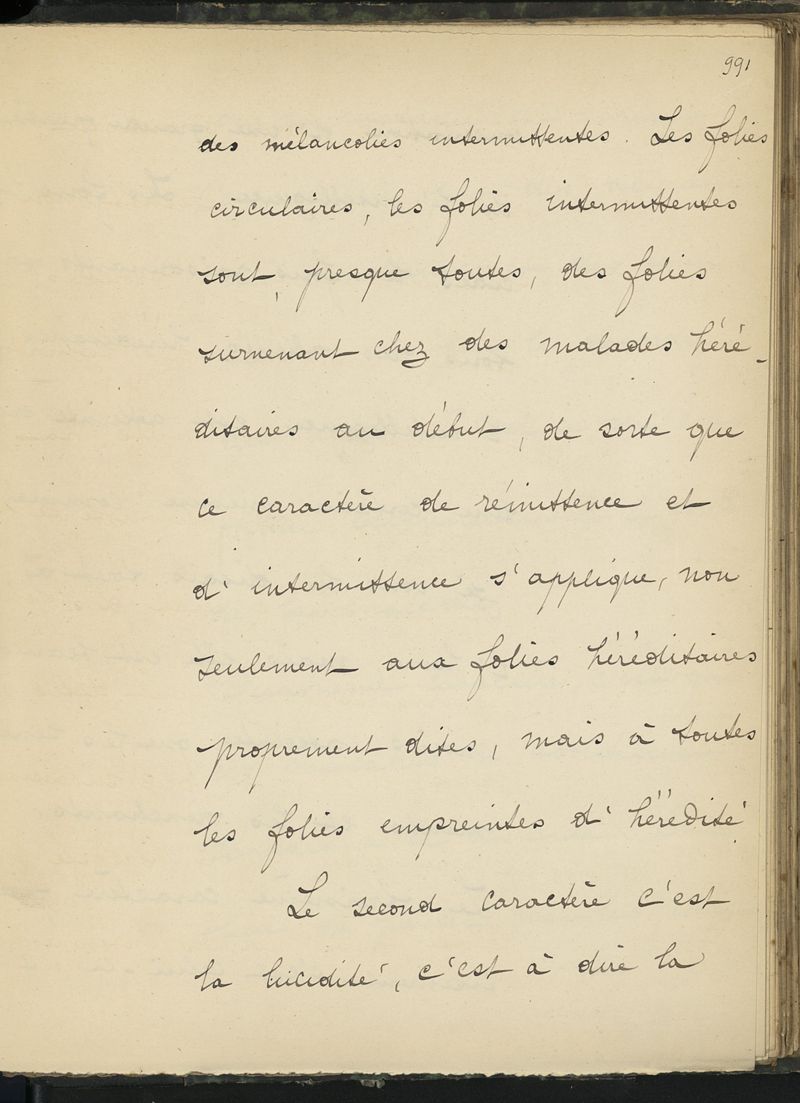 991
des mélancolies intermittentes. Les folies
circulaires, les folies intermittentes
sont, presque toutes, des folies
survenant chez des malades héré-
ditaires au début, de sorte que
ce caractère de rémittence et
d'intermittence s'applique, non
seulement aux folies héréditaires
proprement dites, mais à toutes
les folies empreintes d'hérédité.
Le second caractère c'est
la lucidité, c'est à dire la